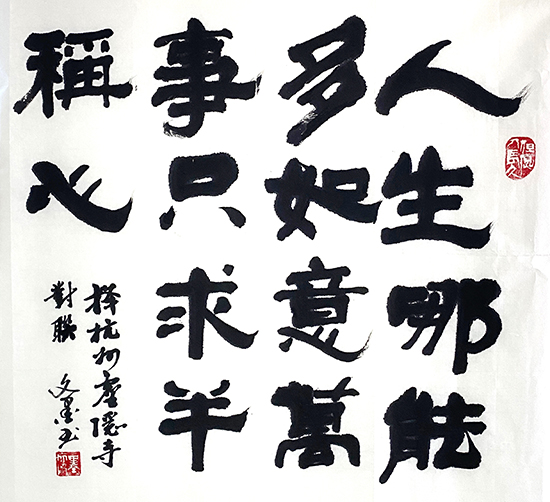 人生哪能
多如意萬
事只求半
稱心
擇杭州靈隱寺
對聯 文墨書